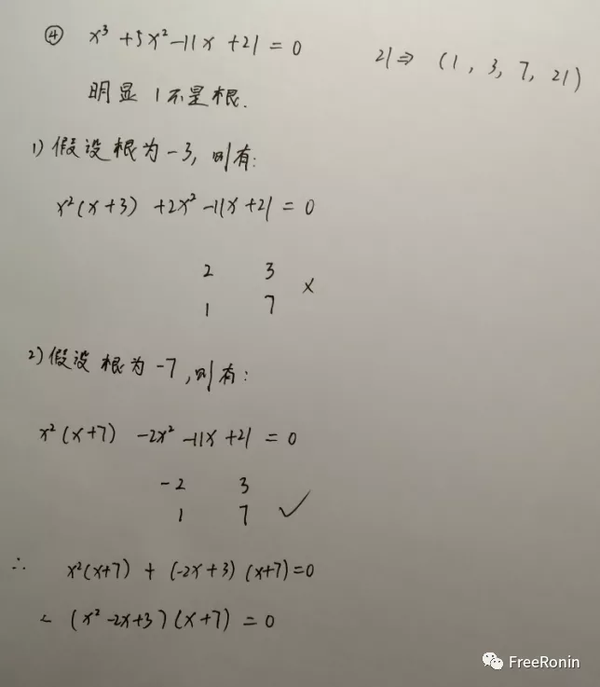 ④ x³ + 5x² - 11x + 21 = 0
21 ⇒ (1, 3, 7, 21)
明显 1 不是根.
1) 假设根为 -3, 则有:
x²(x+3) + 2x² - 11x + 21 = 0
2 3
1 7 ×
2) 假设根为 -7, 则有:
x²(x+7) - 2x² - 11x + 21 = 0
-2 3
1 7 ✓
∴ x²(x+7) + (-2x+3)(x+7) = 0
(x² - 2x + 3)(x+7) = 0
FreeRonin